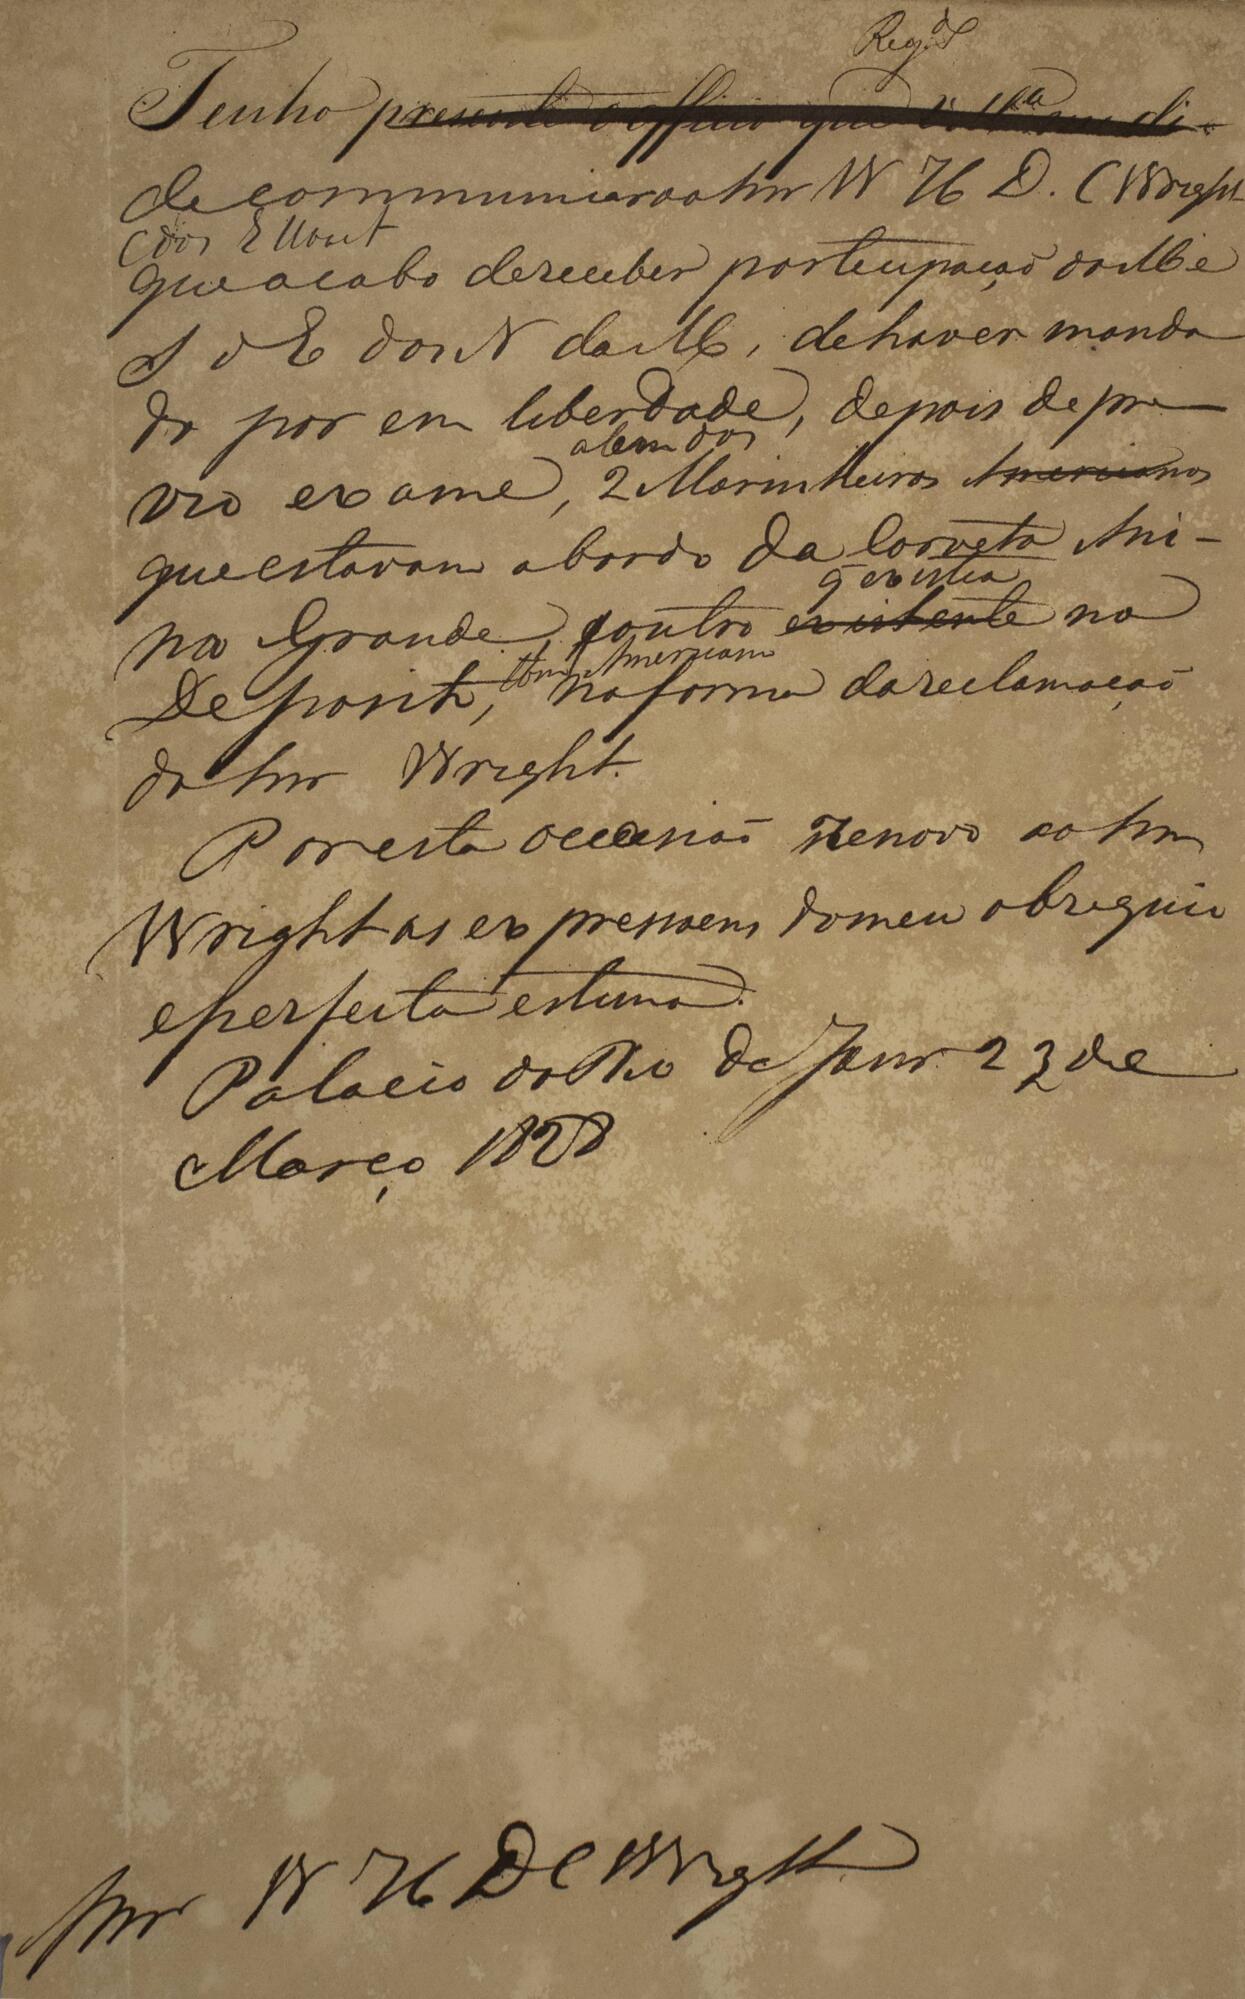 Reg.do
Tenho presente o officio que V. M.ca me di-
de communicar ao Snr W H D. C Wright
C dos E Unit
que acabo de receber participação do M e
S d E dos N da M, de haver manda
do por em liberdade, depois de pre
vio exame,
alem dos
2 Marinheiros Americanos
que estavam a bordo da Corveta Ani-
q existia
na Grande, outro existente no
Americano
Deposito, na forma da reclamação
do Snr Wright.
Por esta occasião renovo ao Snr
Wright as expressoens do meu obsequio
e perfeita estima.
Palacio do Rio de Janr 23 de
Março 1828
Snr W H D C Wright